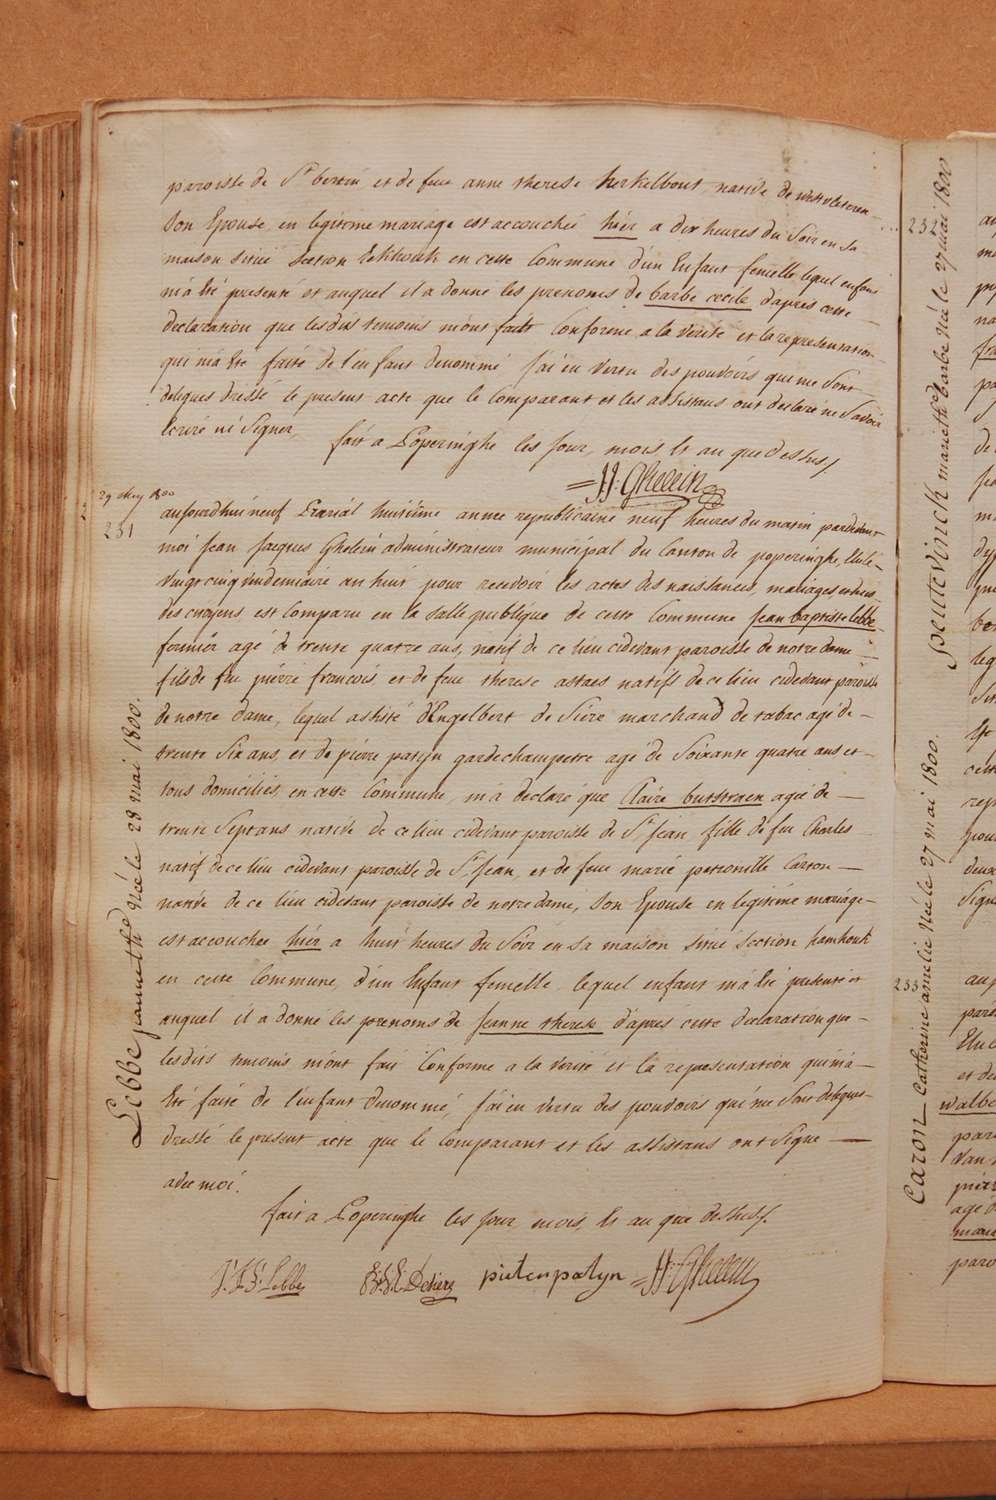 paroisse de St bertin et de feue anne therese herkelbout, native de westvleteren
Son Epouse, en legitime mariage est accouchée hièr a dix heures du Soir en sa
maison situé Section en cette Commune d'un Enfant femelle lequel enfant
m'a Eté presenté et auquel il a donné les prenoms de barbe cecile d'apres cette
declaration que lesdits temoins m'ont fait Conforme a la verité et la representation
qui m'a Eté faite de l'enfant denommé J'ai en vertu des pouvoirs qui me Sont
delegués dressé le present acte que le Comparant et les assistans ont declaré ne Savoir
Ecrire ni Signer
fait a Poperinghe les Jour, mois, Et an que dessus/
JJ: Ghelein
29 May 1800
231
aujourdhui neuf Prairial huitiême année republicaine neuf heures du matin pardevant
moi Jean Jacques Ghelein administrateur municipal du Canton de poperinghe, Elu le
Vingt cinq Vindemiaire an huit pour recevoir les actes des naissances, mariages et deces
des citoyens est Comparu en la Salle publique de cette Commune Jean baptiste lebbe
fermier agé de trente quatre ans, natif de ce lieu cidevant paroisse de notre dame
fils de feu pierre francois, et de feue therese astaes natifs de ce lieu cidevant paroisse
de notre dame, lequel assisté d'Engelbert de Siere marchand de tabac agé de
trente Six ans, et de pierre patyn gardechampetre agé de Soixante quatre ans et
tous domiciliés, en cette Commune, m'a declaré que Claire butstraen agée de
trente Sept ans native de ce lieu cidevant paroisse de St Jean, fille de feu Charles
natif de ce lieu cidevant paroisse de St Jean, et de feue marie petronille Carton
native de ce lieu cidevant paroisse de notre dame, Son Epouse en legitime mariage
est accouchée hièr a huit heures du Soir en Sa maison Situé Section hamhouk
en cette Commune, d'un Enfant femelle, lequel enfant m'a Eté presenté et
auquel il a donné les prenoms de Jeanne therese d'apres cette declaration que
lesdits temoins m'ont fait Conforme a la verité et la representation qui m'a
Eté faite de l'enfant denommé, J'ai en vertu des pouvoirs qui me Sont delegués
dressé le present acte que le Comparant et les assistans ont Signe
avec moi.
fait a Poperinghe les Jour, mois, Et an que dessus/.
J: B: Lebbe
E: Desiere
pieter patyn
JJ: Ghelein
Lebbe Jeanne thse Née le 28 mai 1800.
232
Speutevinck marie thse barbe Née le 27 mai 1800
233
Caron Catherine amelie Née le 27 mai 1800.